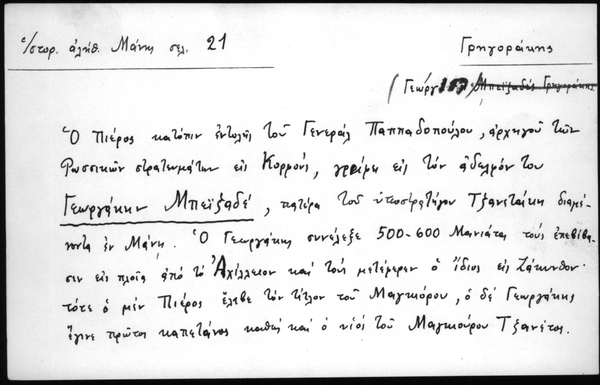 Ἱστορ. ἀλήθ. Μάνης σελ. 21
Γρηγοράκης
Μπεϊζαδές Γρηγοράκης
Ὁ Πιέρος κατόπιν ἐντολῆς τοῦ Γενεράλ Παππαδοπούλου, ἀρχηγοῦ τῶν
Ρωσσικῶν στρατευμάτων εἰς Κορφούς, γράφει εἰς τόν ἀδελφόν του
Γεωργάκην Μπεϊζαδέ, πατέρα τοῦ ὑποστρατήγου Τζανετάκη διαμέ-
νοντα ἐν Μάνῃ. Ὁ Γεωργάκης συνέλεξε 500-600 Μανιάτας τούς ἐπεβίβα-
σεν εἰς πλοῖα ἀπό τό Ἀχίλλειον καί τούς μετέφερεν ὁ ἴδιος εἰς Ζάκυνθον·
τότε ὁ μέν Πιέρος ἔλαβε τόν τίτλον τοῦ Μαγκιόρου, ὁ δέ Γεωργάκης
ἔγινε πρῶτος καπετάνος καθώς καί ὁ υἱός τοῦ Μαγκιούρου Τζανέτος.